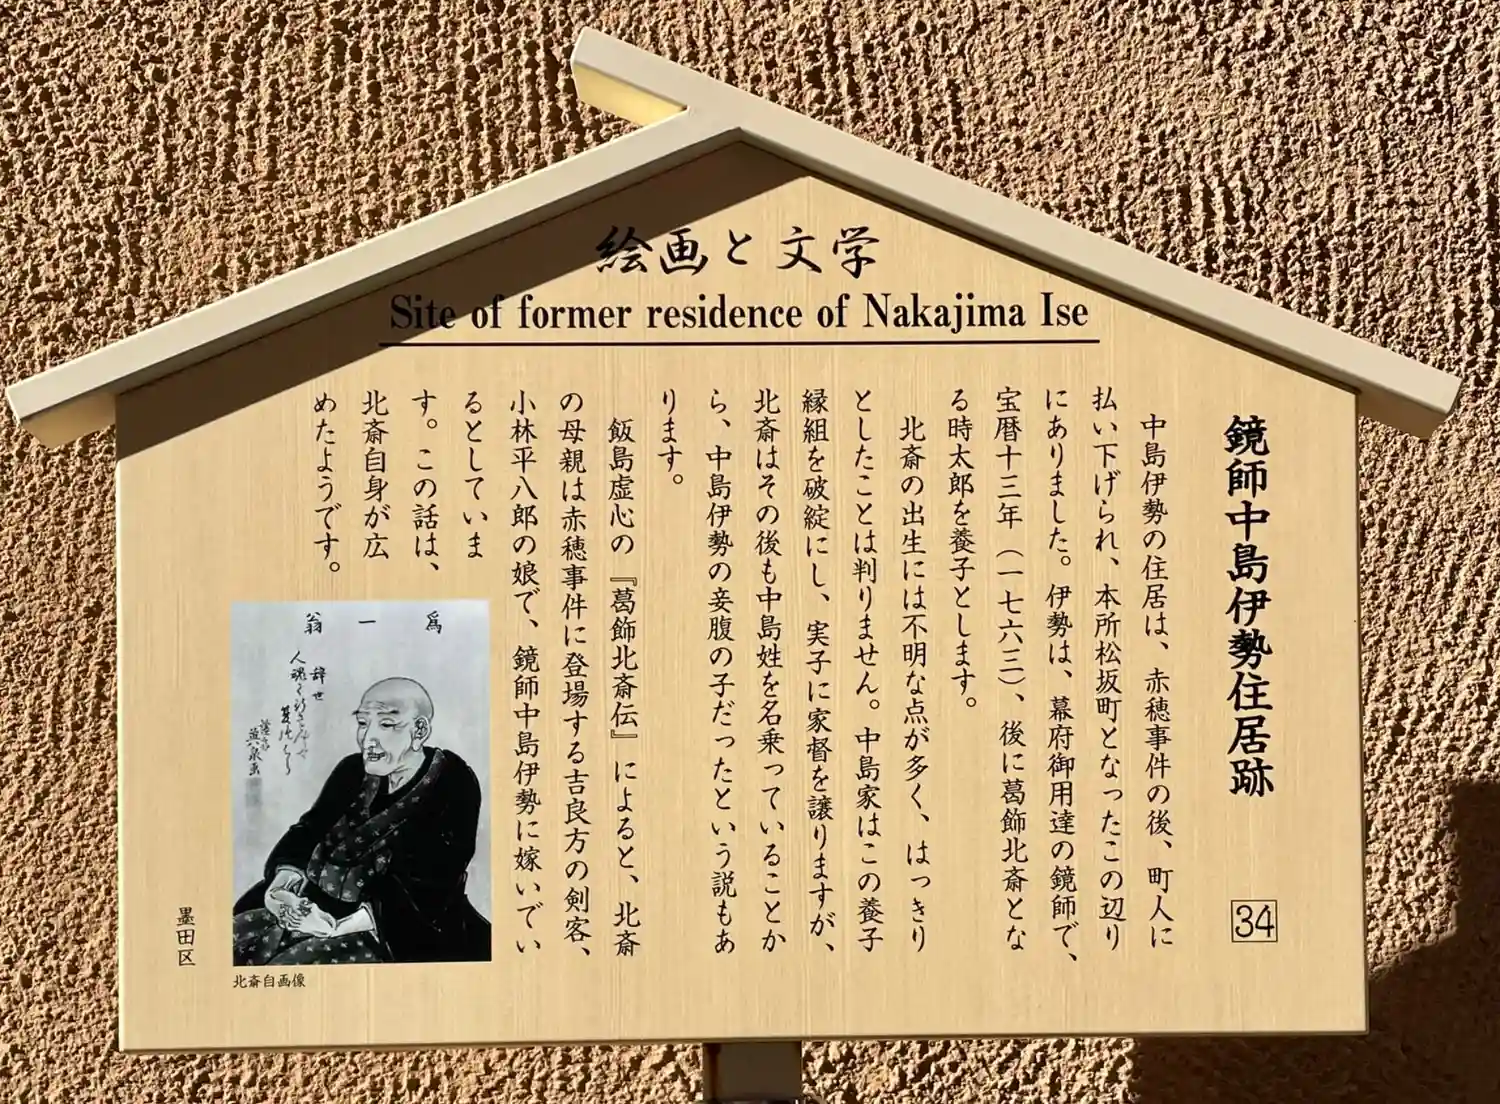 絵画と文学
Site of former residence of Nakajima Ise
鏡師中島伊勢住居跡
34
中島伊勢の住居は、赤穂事件の後、町人に
払い下げられ、本所松坂町となったこの辺り
にありました。伊勢は、幕府御用達の鏡師で、
宝暦十三年（一七六三）、後に葛飾北斎とな
る時太郎を養子とします。
北斎の出生には不明な点が多く、はっきり
としたことは判りません。中島家はこの養子
縁組を破綻にし、実子に家督を譲りますが、
北斎はその後も中島姓を名乗っていることか
ら、中島伊勢の妾腹の子だったという説もあ
ります。
飯島虚心の『葛飾北斎伝』によると、北斎
の母親は赤穂事件に登場する吉良方の剣客、
小林平八郎の娘で、鏡師中島伊勢に嫁いでい
るとしていま
す。この話は、
北斎自身が広
めたようです。
為一翁
辞世
人魂で
北斎自画像
墨田区